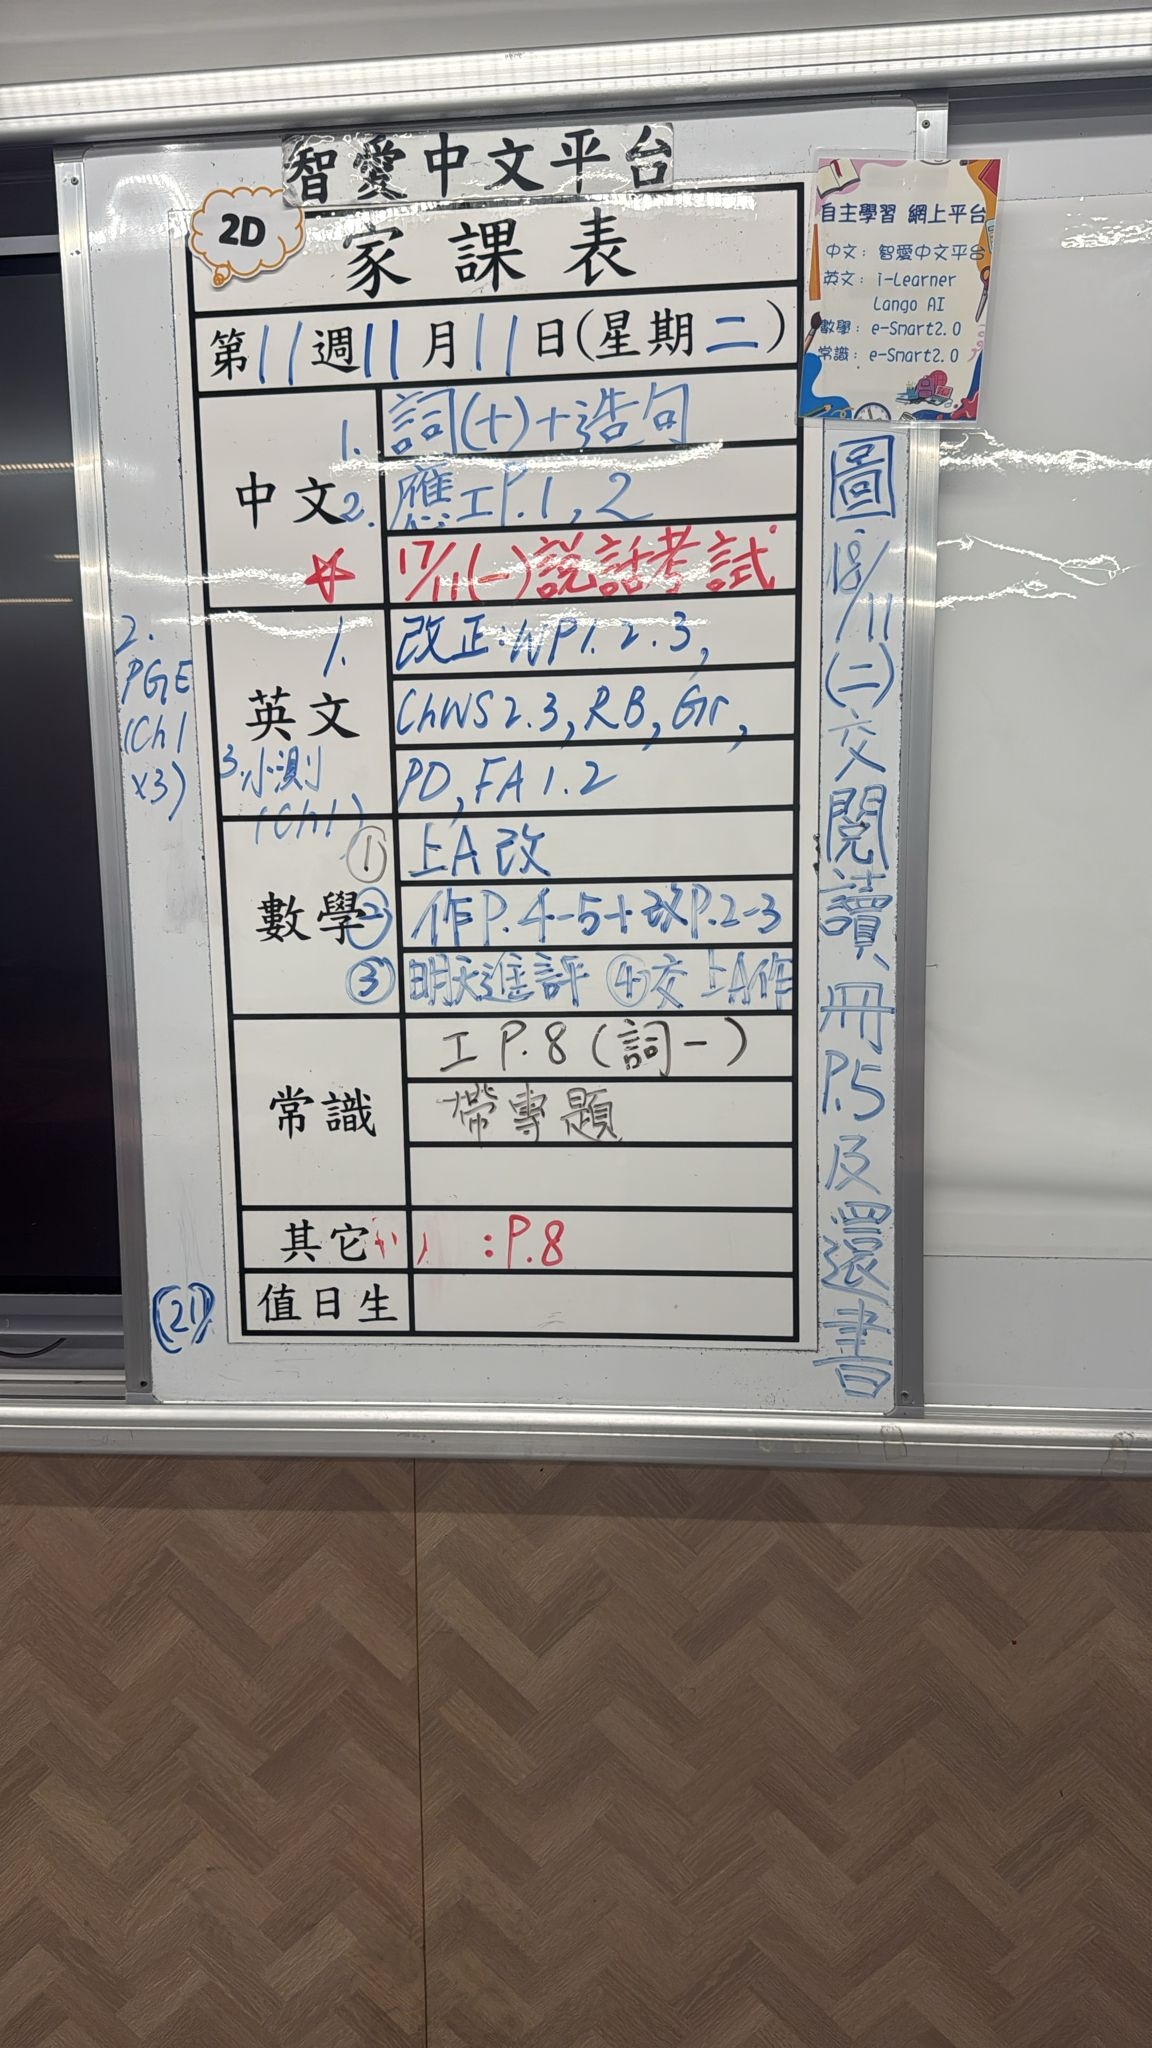 智愛中文平台
2D
家課表
第11週11月11日(星期二)
中文
1. 詞(十)+造句
2. 應工P.1,2
☆ 17/11(一)說話考試
英文
1. 改正:WP1.2.3,
ChWS2.3, RB, Gr,
PD, FA1.2
2.
PGE
(Ch1
x3)
3. 小測
(Ch1)
數學
① 上A改
② 作P.4-5+改P.2-3
③ 明天進評 ④交上A作
常識
工P.8(詞一)
帶專題
其它
:P.8
值日生
(21)
自主學習 網上平台
中文: 智愛中文平台
英文: i-Learner
Lango AI
數學: e-Smart2.0
常識: e-Smart2.0
圖:18/11(二)交閱讀冊P.5及還書